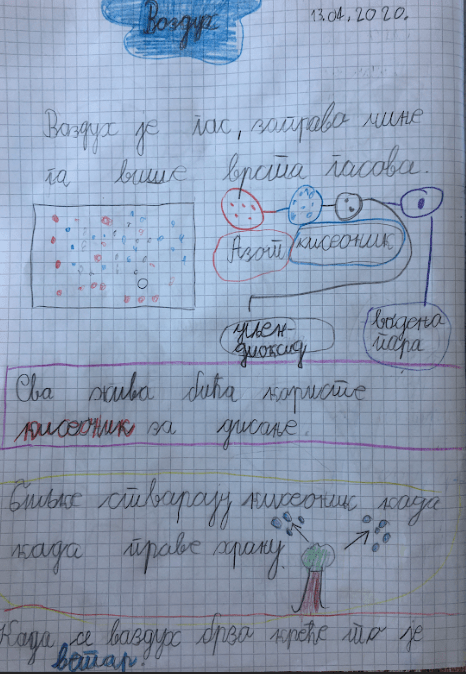 Ваздух
13.04.2020.
Ваздух је гас, заправо чине
га више врста гасова.
Азот
кисеоник
угљен-
диоксид
водена
пара
Сва жива бића користе
кисеоник за дисање.
Биљке стварају кисеоник када
када праве храну.
Када се ваздух брза креће то је
ветар.